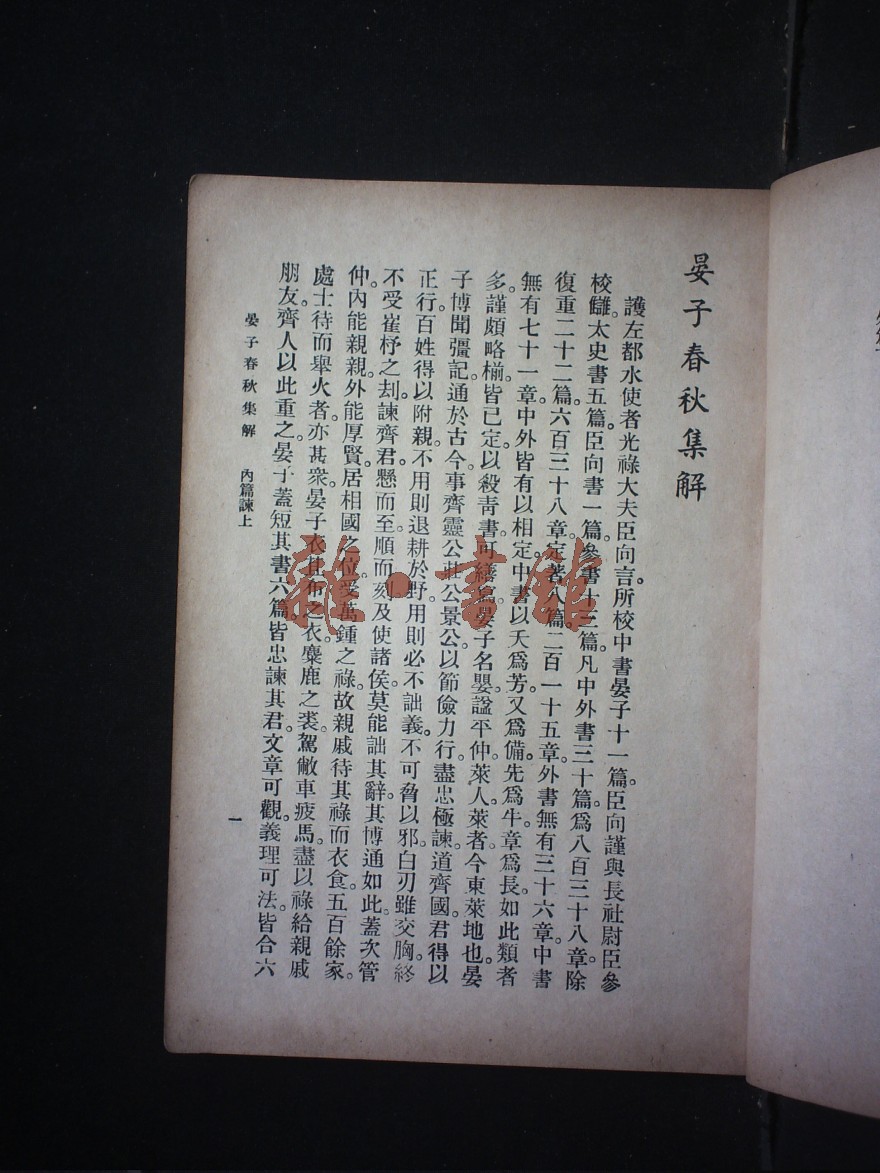 晏子春秋集解
護左都水使者光祿大夫臣向言。所校中書晏子十一篇。臣向謹與長社尉臣參
校讎。太史書五篇。臣向書一篇。參書十三篇。凡中外書三十篇。爲八百三十八章。除
復重二十二篇。六百三十八章。定著八篇。二百一十五章。外書無有三十六章。中書
無有七十一章。中外皆有以相定。中書以夭爲芳。又爲備。先爲牛。章爲長。如此類者
多。謹頗略椾。皆已定。以殺靑書。可繕寫。晏子名嬰。謚平仲。萊人。萊者。今東萊地也。晏
子博聞彊記。通於古今。事齊靈公莊公景公。以節儉力行。盡忠極諫。道齊國君得以
正行。百姓得以附親。不用則退耕於野。用則必不詘義。不可脅以邪。白刃雖交胸。終
不受崔杼之刦。諫齊君懸而至。順而刻。及使諸侯。莫能詘其辭。其博通如此。蓋次管
仲。內能親親。外能厚賢。居相國之位。受萬鍾之祿。故親戚待其祿而衣食。五百餘家。
處士待而舉火者。亦甚衆。晏子衣苴布之衣。麋鹿之裘。駕敝車疲馬。盡以祿給親戚
朋友。齊人以此重之。晏子蓋短。其書六篇。皆忠諫其君。文章可觀。義理可法。皆合六
晏子春秋集解　內篇諫上
一
雜·書館